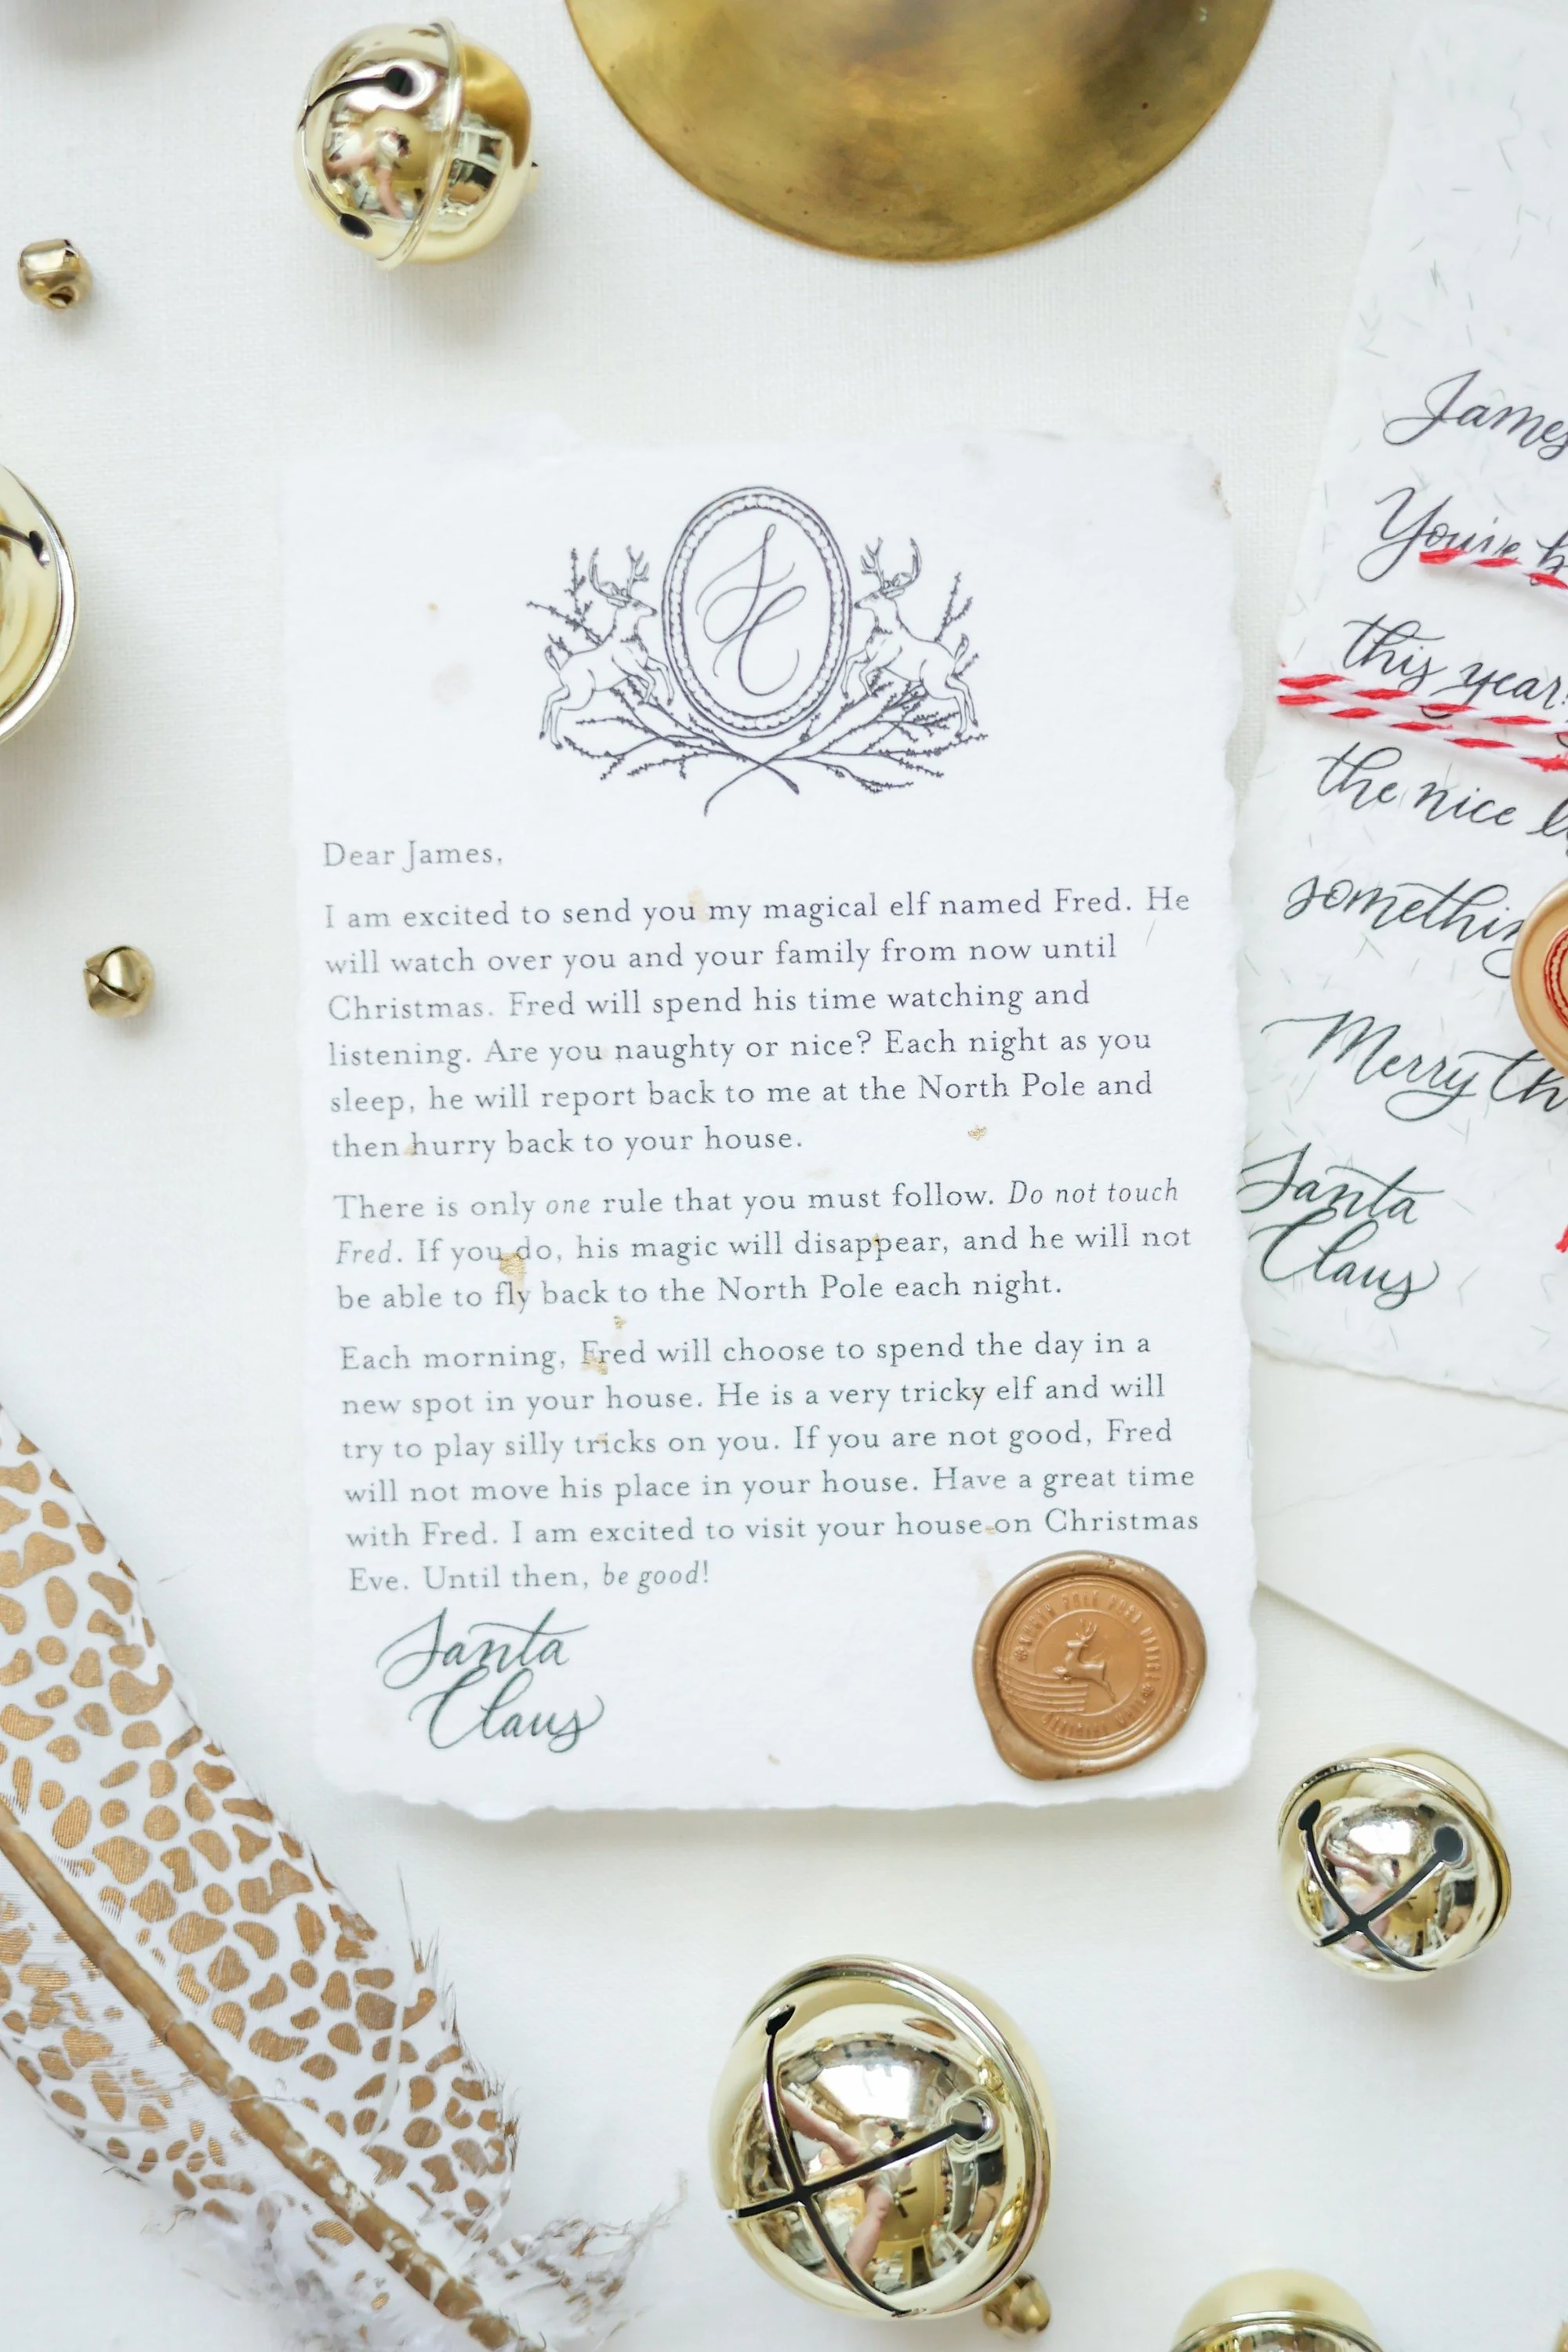 SC
Dear James,
I am excited to send you my magical elf named Fred. He
will watch over you and your family from now until
Christmas. Fred will spend his time watching and
listening. Are you naughty or nice? Each night as you
sleep, he will report back to me at the North Pole and
then hurry back to your house.
There is only one rule that you must follow. Do not touch
Fred. If you do, his magic will disappear, and he will not
be able to fly back to the North Pole each night.
Each morning, Fred will choose to spend the day in a
new spot in your house. He is a very tricky elf and will
try to play silly tricks on you. If you are not good, Fred
will not move his place in your house. Have a great time
with Fred. I am excited to visit your house on Christmas
Eve. Until then, be good!
Santa
Claus
NORTH POLE POST OFFICE
OFFICIAL MAIL
James
You've
this year!
the nice
Merry
Santa
Claus